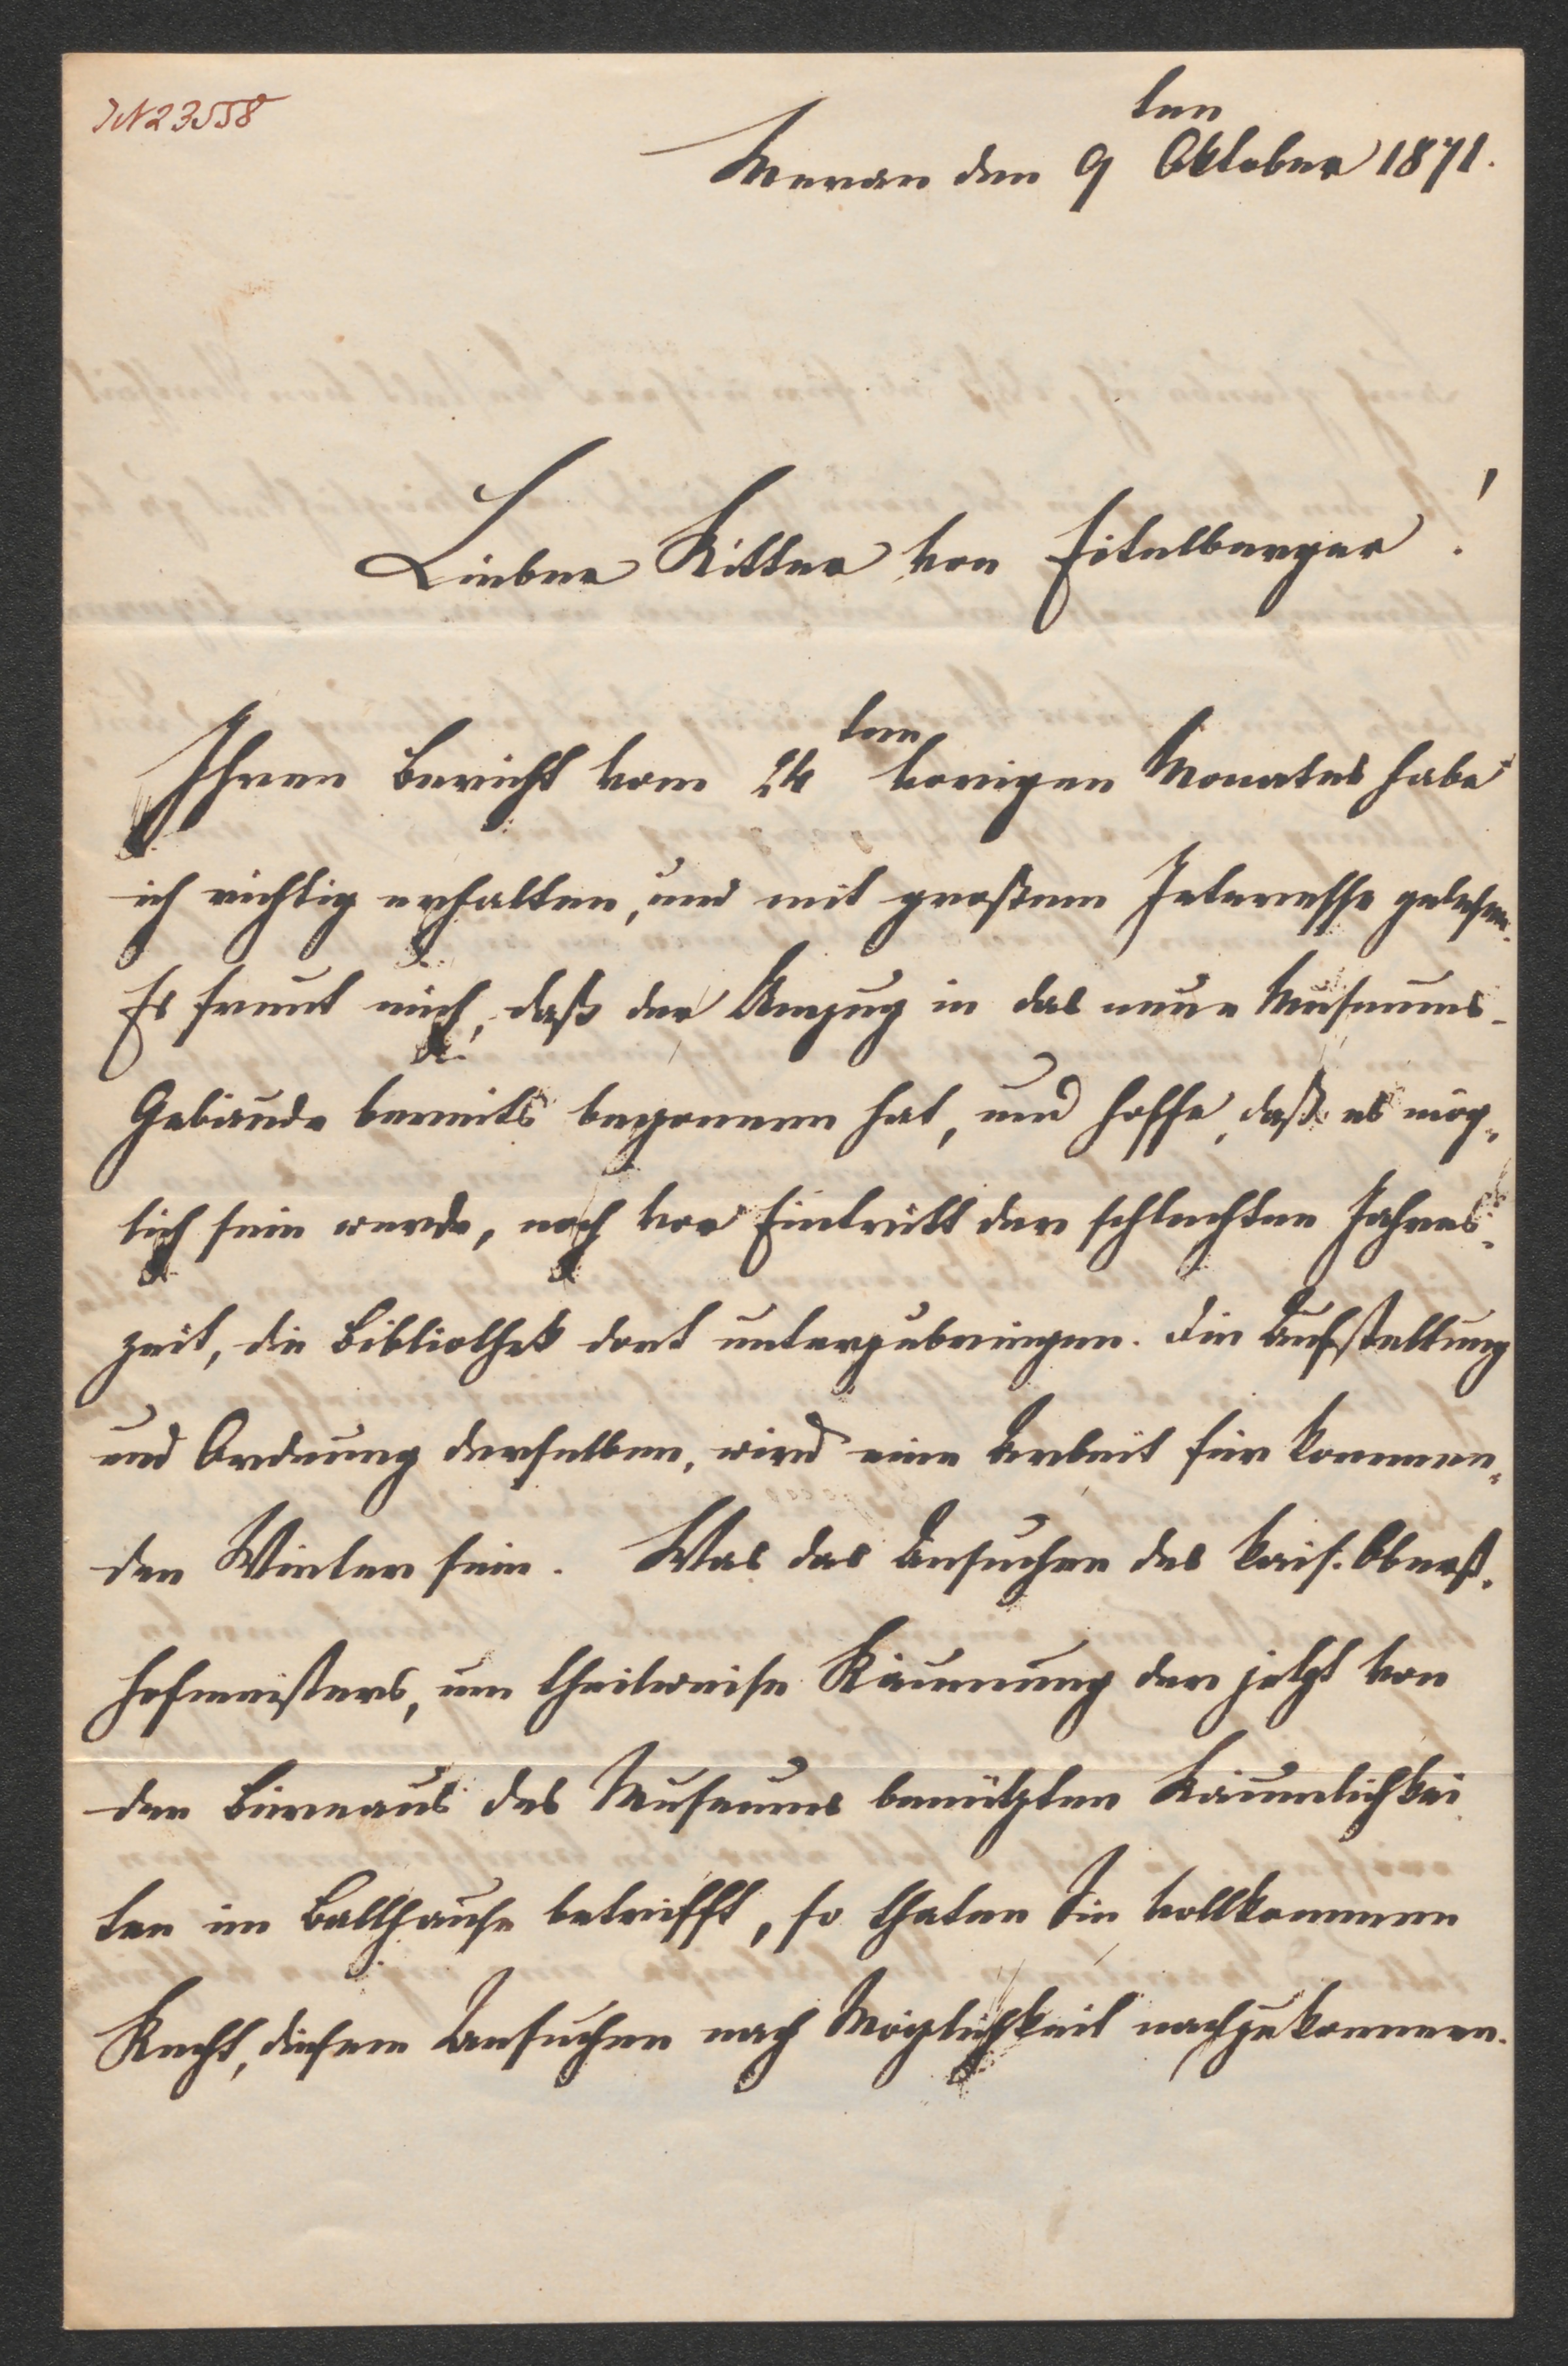 IN 23558
Meran den 9ten Oktober 1871.
Lieber Ritter von Eitelberger!
Ihren Bericht vom 24ten vorigen Monates habe
ich richtig erhalten, und mit großem Interesse gelesen.
Es freut mich, daß der Umzug in das neue Museums-
Gebäude bereits begonnen hat, und hoffe, daß es mög-
lich sein werde, noch vor Eintritt der schlechten Jahres-
zeit, die Bibliothek dort unterzubringen. Die Aufstellung
und Ordnung derselben, wird eine Arbeit für kommen-
den Winter sein. Was das Ansuchen des kais. Oberst-
hofmeisters, um theilweise Räumung der jetzt von
den Büreaus des Museums benützten Räumlichkei
ten im Ballhause betrifft, so thaten Sie vollkommen
Recht, diesem Ansuchen nach Möglichkeit nachzukommen.